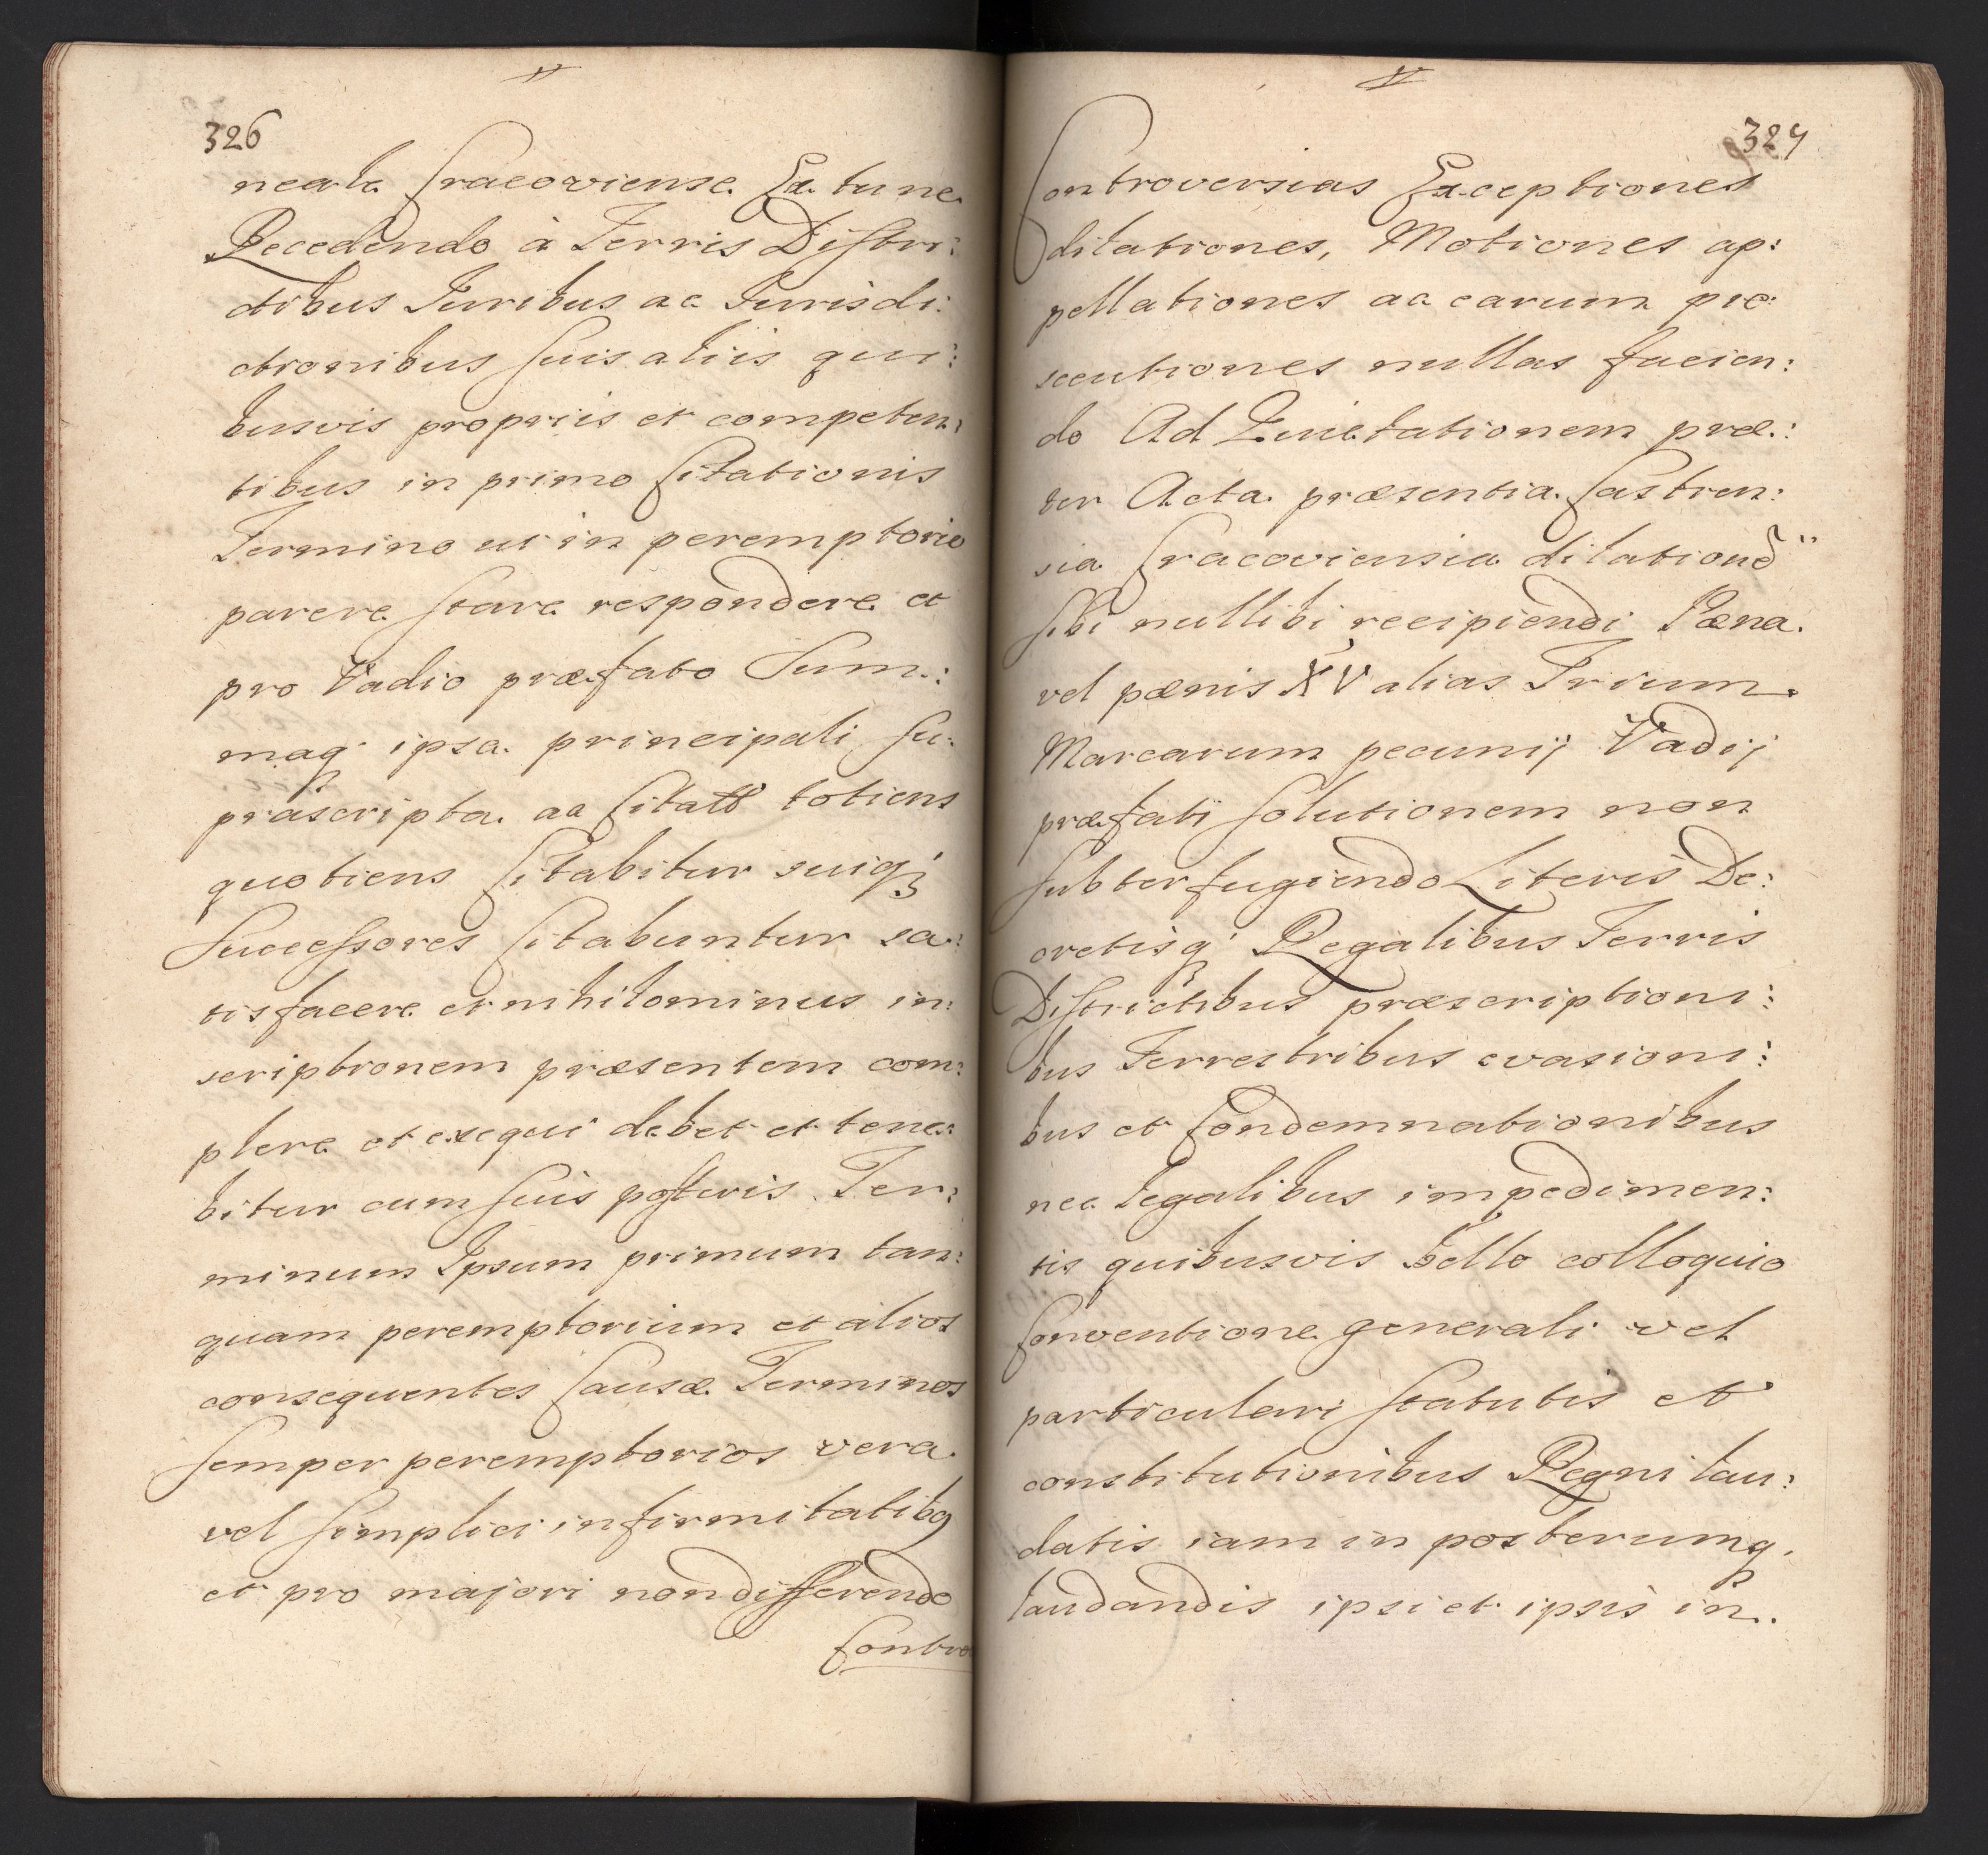 326
neale Cracoviense Ex tunc
Recedendo à Terris Distri:
ctibus Juribus ac Jurisdi:
ctionibus suis aliis qui:
busvis propriis et competen:
tibus in primo Citationis
Termino ut in peremptorio
parere stare respondere et
pro Vadio præfato Sum:
maq ipsa principali su:
prascripta ac Citatô totiens
quotiens Citabitur suiq;
Successores Citabuntur sa:
tisfacere et nihilominus in:
scriptionem præsentem com:
plere et exequi debet et tene:
bitur cum suis posteris. Ter:
minum Ipsum primum tan:
quam peremptorium et alios
consequentes Causæ Terminos
semper peremptorios vera
vel simplici infirmitatibq
et pro majori non differendo
Contro
327
Controversias Exceptiones
dilationes, Motiones ap:
pellationes ac earum pro:
secutiones nullas facien:
do Ad Quietationem præ:
ter Acta præsentia Castren:
sia Cracoviensia dilationê
sibi nullibi recipiendi Pæna
vel pænis XV alias Trium
Marcarum pecunij Vadij
præfati solutionem non
subterfugiendo Literis De:
cretisq; Regalibus Terris
Districtibus præscriptioni:
bus Terrestribus evasioni:
bus et Condemnationibus
nec legalibus impedimen:
tis quibusvis bello colloquio
Conventione generali vel
particulari statutis et
constitutionibus Regni lau:
datis iam in posterumq.
laudandis ipsi et ipsis in